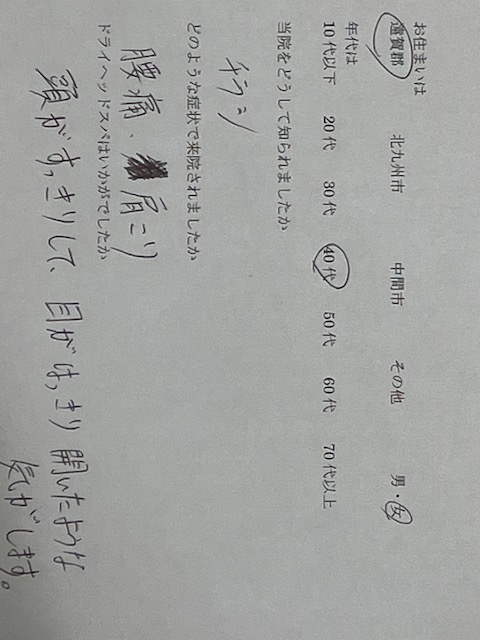 お住まいは
遠賀郡 北九州市 中間市 その他 男・女
年代は
10代以下 20代 30代 40代 50代 60代 70代以上
当院をどうして知られましたか
チラシ
どのような症状で来院されましたか
腰痛、肩こり
ドライヘッドスパはいかがでしたか
頭がすっきりして、目がはっきり開いたような
気がします。